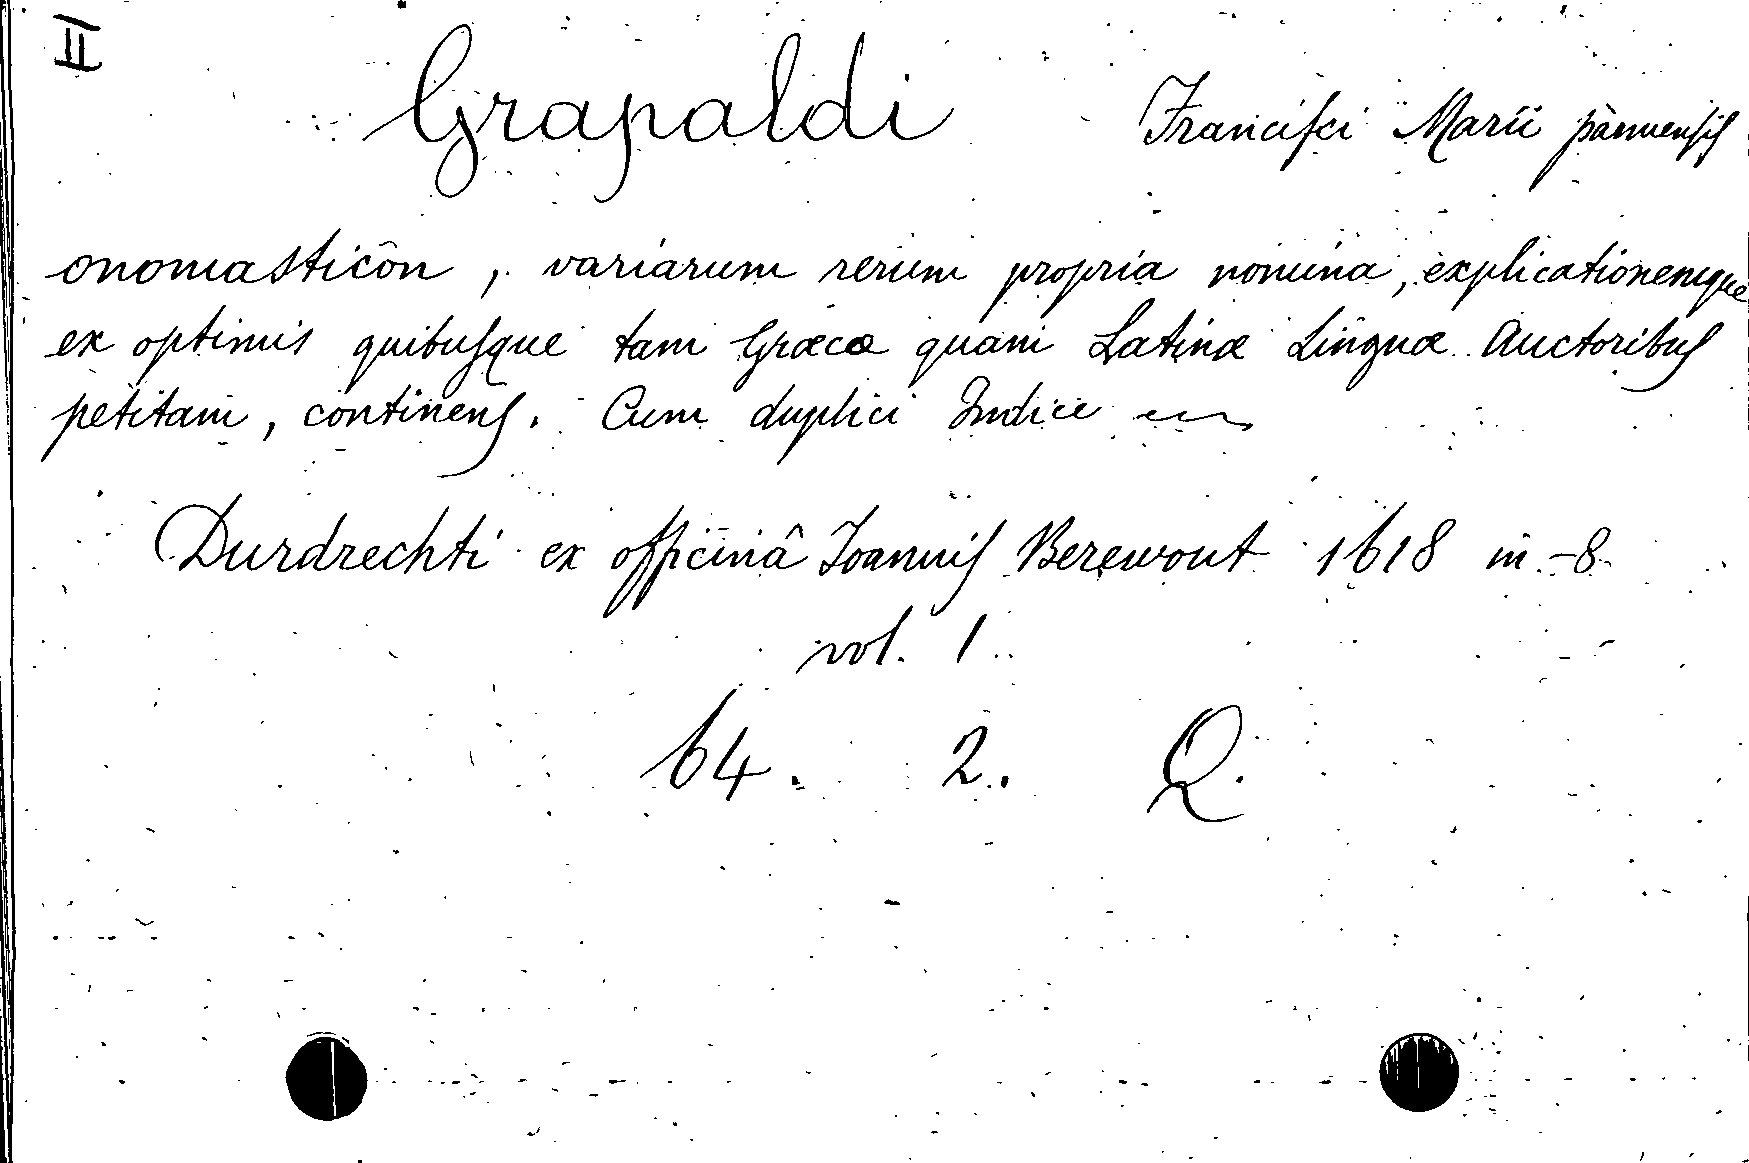 II
Grapaldi Francisci Marii parmensis
onomasticôn, variarum rerum propria nomina, explicationemque
ex optimis quibusque tam Græcæ quam Latinæ Linguæ Auctoribus
petitam, continens. Cum duplici Indice
Durdrechti ex officinâ Joannis Berewout 1618 in-8
vol. 1
64. 2. Q.